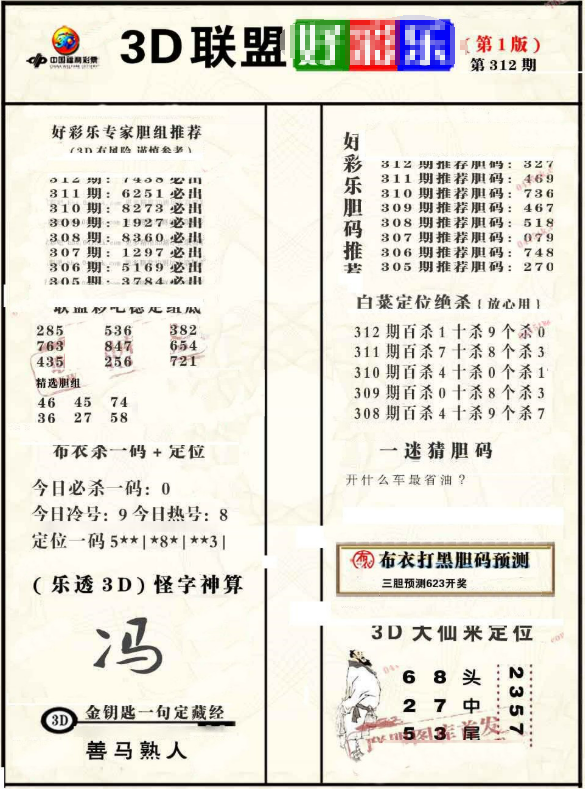 中国福利彩票
3D联盟好彩乐
(第1版)
第312期
好彩乐专家胆组推荐
(3D有风险 谨慎参考)
312期: 7438必出
311期: 6251必出
310期: 8273必出
309期: 1927必出
308期: 8360必出
307期: 1297必出
306期: 5169必出
305期: 3784必出
联盟彩吧稳定组底
285 536 382
763 847 654
435 256 721
精选胆组
46 45 74
36 27 58
布衣杀一码+定位
今日必杀一码: 0
今日冷号: 9 今日热号: 8
定位一码5**|*8*|**3|
(乐透3D)怪字神算
冯
3D 金钥匙一句定藏经
善马熟人
好彩乐胆码推荐
312期推荐胆码: 327
311期推荐胆码: 469
310期推荐胆码: 736
309期推荐胆码: 467
308期推荐胆码: 518
307期推荐胆码: 079
306期推荐胆码: 748
305期推荐胆码: 270
白菜定位绝杀(放心用)
312期百杀1十杀9个杀0
311期百杀7十杀8个杀3
310期百杀4十杀0个杀1
309期百杀0十杀8个杀3
308期百杀4十杀9个杀7
一迷猜胆码
开什么军最省油?
布衣打黑胆码预测
三胆预测623开奖
3D大仙来定位
6 8 头
2 7 中
5 3 尾
2357